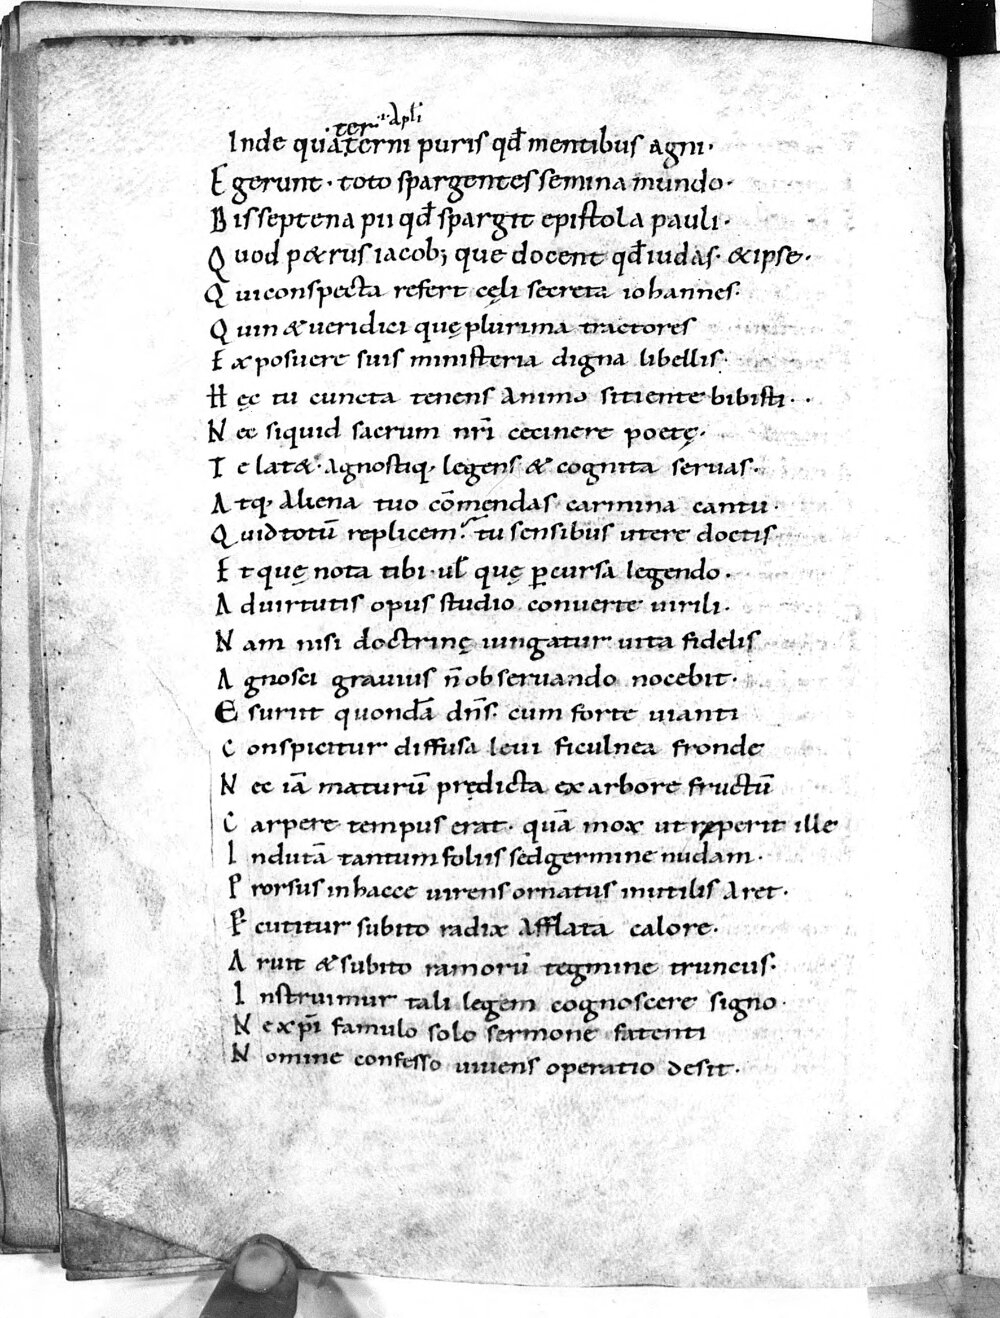 ter .i. Apłi
Inde quaterni puris qđ mentibus agni.
Egerunt. toto spargentes semina mundo.
Bis septena pii qđ spargit epistola pauli.
Quod p&rus iacob; que docent qđ iudas. & ipse.
Qui conspecta refert cęli secreta iohannes.
Quin & ueridici quę plurima tractores
Exposuere suis ministeria digna libellis.
Hęc tu cuncta tenens animo sitiente bibisti.
Nec siquid sacrum nr̄i cecinere poetę.
Te lat&. agnostiq; legens & cognita seruas.
Atq; aliena tuo cōmendas carmina cantu.
Quid totū replicem. tu sensibus utere doctis
Et quę nota tibi. uł quę ꝑcursa legendo.
Ad uirtutis opus studio conuerte uirili.
Nam nisi doctrinę iungatur uita fidelis
Agnosci grauius n̄ obseruando nocebit.
Esuriit quondā dn̄s. cum forte uianti
Conspicitur diffusa leui ficulnea fronde
Nec iā maturū prędicta ex arbore fructū
Carpere tempus erat. quā mox ut reperit ille
Indutā tantum foliis sed germine nudam.
Prorsus in hacce uirens ornatus inutilis aret.
Excutitur subito radix afflata calore.
Aruit & subito ramorū tegmine truncus.
Instruimur tali legem cognoscere signo.
Ne xp̄i famulo solo sermone fatenti
Nomine confesso uiuens operatio desit.